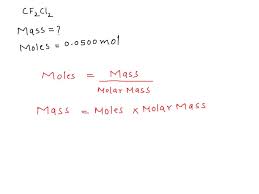 CF₂Cl₂
Mass = ?
Moles = 0.0500 mol
Moles = Mass / Molar Mass
Mass = Moles × Molar Mass